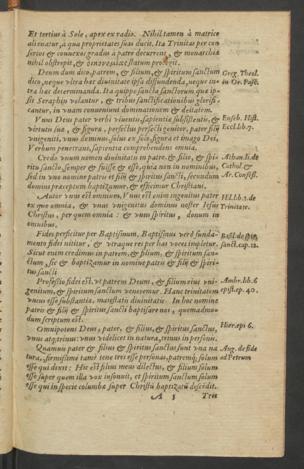 Et tertius à Sole, apex ex radio. Nihil tamen à matrice
alienatur, à qua proprietates suas ducit. Ita Trinitas per con
sertos & connexos gradus à patre decurrens, & monarchiæ
nihil obstrepit, & statum protegit.
Deum dum dico, patrem, & filium, & spiritum sanctum
dico, neque vltra hæc diuinitate ipsa diffundenda, neque in-
tra hæc determinanda. Ita quippe sancta sanctorum quæ ip-
sis Seraphin velantur, & tribus sanctificationibus glorifi-
cantur, in vnam conueniunt dominationem & deitatem.
Greg. Theol.
in Or. Pasc.
Vnus Deus pater verbi viuentis, sapientiæ subsistentis, &
virtutis suæ, & figuræ, perfectus perfecti genitor, pater filij
vnigeniti, vnus dominus, solus ex solo, figura et imago Dei,
Verbum penetrans, sapientia comprehendens omnia.
Euseb. Hist.
Eccl. lib. 7.
Credo vnum nomen diuinitatis in patre, & filio, & spi-
ritu sancto, semper & fuisse & esse, quia non in nominibus,
sed in vno nomine patris et filij & spiritus sancti, secundum
domini præceptum baptizamur, & efficimur Christiani.
Athan. li. de
Ar. Confess.
Autor vnus est omnium, Vnus est enim ingenitus pater
ex quo omnia, & vnus vnigenitus dominus noster Iesus
Christus, per quem omnia: & vnus spiritus, donum in
omnibus.
Hil. lib. 2. de
Trinitate.
Fides perficitur per Baptismum, Baptismus verò funda-
mento fidei nititur, & vtraque res per has voces impletur.
Sicut enim credimus in patrem, & filium, & spiritum san-
ctum, sic & baptizamur in nomine patris & filij & spiri-
tus sancti.
sanct. cap. 12.
Professio fidei est, vt patrem Deum, & filium eius vni-
genitum, & spiritum sanctum veneremur. Hanc trinitatem
vnius esse substantiæ, maiestatis diuinitatis. In hoc nomine
patris & filij & spiritus sancti baptisare nos, quemadmo-
dum scriptum est.
Ambr. lib. 6
epist. ep. 40.
Omnipotens Deus, pater, & filius, & spiritus sanctus,
vnus atq; trinus: vnus videlicet in natura, trinus in personis.
Hier. epi 6.
Quamuis pater & filius & spiritus sanctus sunt vna na
tura, firmissimè tamē tene tres esse personas, patremq; solum
esse qui dixit: Hic est filius meus dilectus, & filium solum
esse super quem illa vox insonuit, et spiritum sanctum solum
esse qui in specie columbæ super Christū baptizatū descēdit.
Aug. de fide
ad Petrum
A 3
Tres